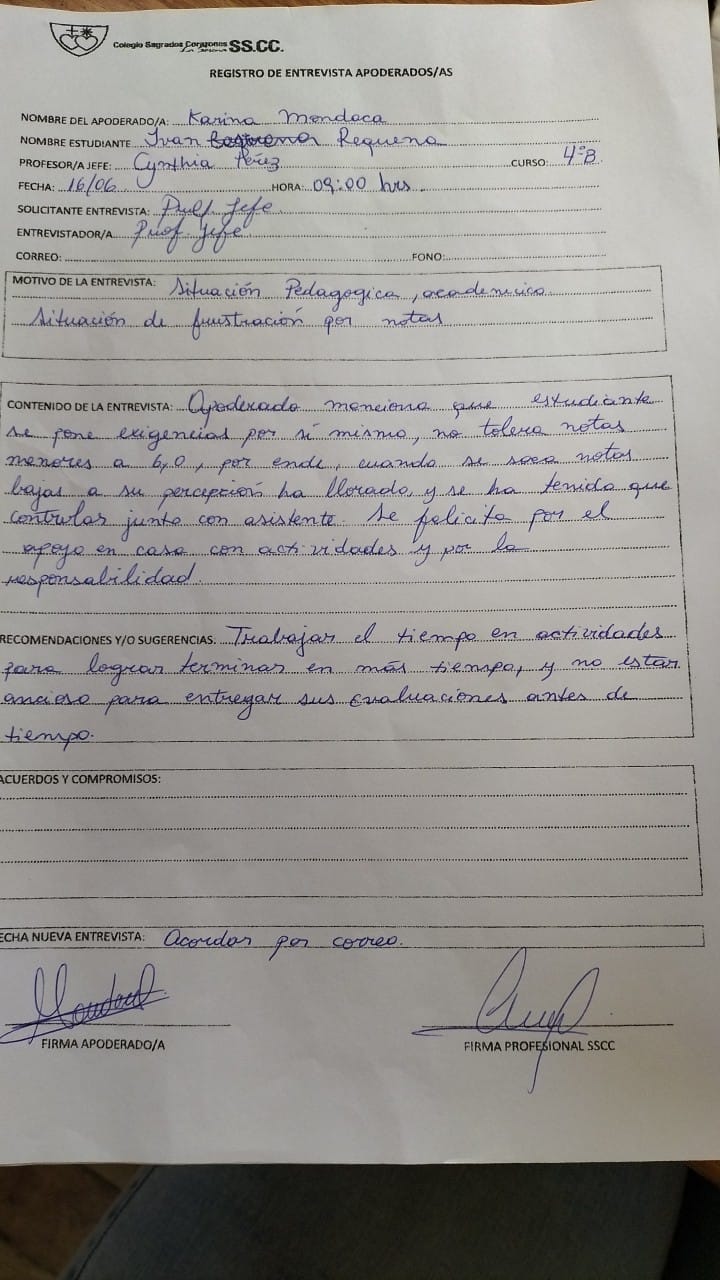 Colegio Sagrados Corazones SS.CC.
La Serena
REGISTRO DE ENTREVISTA APODERADOS/AS
NOMBRE DEL APODERADO/A: Karina Mondaca
NOMBRE ESTUDIANTE Ivan Requena
PROFESOR/A JEFE: Cynthia Pérez CURSO: 4°B
FECHA: 16/06 HORA: 09:00 hrs.
SOLICITANTE ENTREVISTA: Prof. Jefe
ENTREVISTADOR/A Prof. Jefe
CORREO: FONO:
MOTIVO DE LA ENTREVISTA: Situación Pedagogica, academico
Situación de frustración por notas
CONTENIDO DE LA ENTREVISTA: Apoderado menciona que estudiante
se pone exigencias por sí mismo, no tolera notas
menores a 6,0, por ende, cuando se saca notas
bajas a su percepción ha llorado, y se ha tenido que
controlar junto con asistente. Se felicita por el
apoyo en casa con actividades y por la
responsabilidad.
RECOMENDACIONES Y/O SUGERENCIAS. Trabajar el tiempo en actividades
para lograr terminar en más tiempo, y no estar
ancioso para entregar sus evaluaciones antes de
tiempo.
ACUERDOS Y COMPROMISOS:
ECHA NUEVA ENTREVISTA: Acordar por correo.
FIRMA APODERADO/A FIRMA PROFESIONAL SSCC